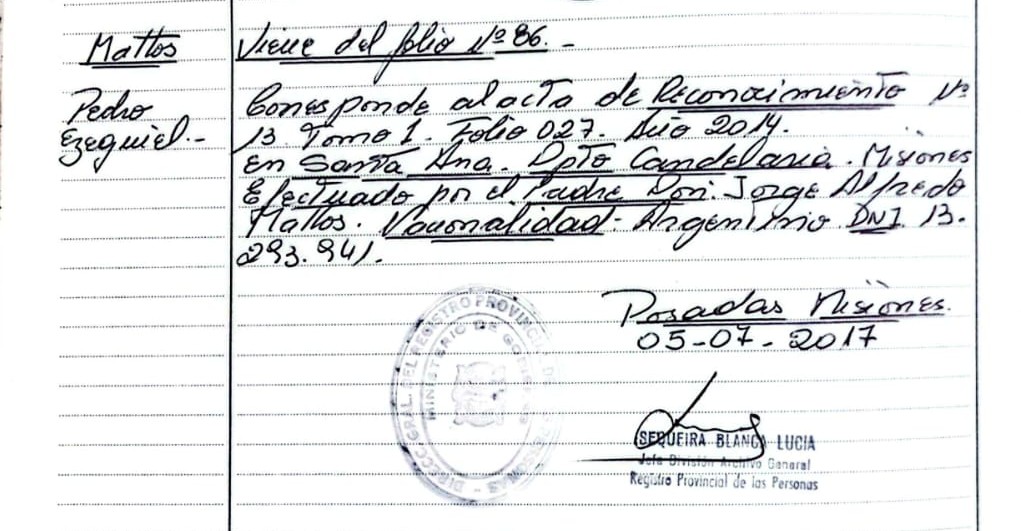 Mattos
Viene del folio Nº 86.-
Pedro
Ezequiel.-
Corresponde al acta de Reconocimiento Nº
13. Tomo 1. Folio 027. Año 2014.
En Santa Ana. Dpto Candelaria. Misiones
Efectuado por el Padre Don: Jorge Alfredo
Mattos. Nacionalidad- Argentino. DNI. 13.
293.941.
Posadas Misiones.
05-07-2017
DIRECC. GRAL. DEL REGISTRO PROVINCIAL DE LAS PERSONAS
MINISTERIO DE GOBIERNO
SEQUEIRA BLANCA LUCIA
Jefa División Archivo General
Registro Provincial de las Personas